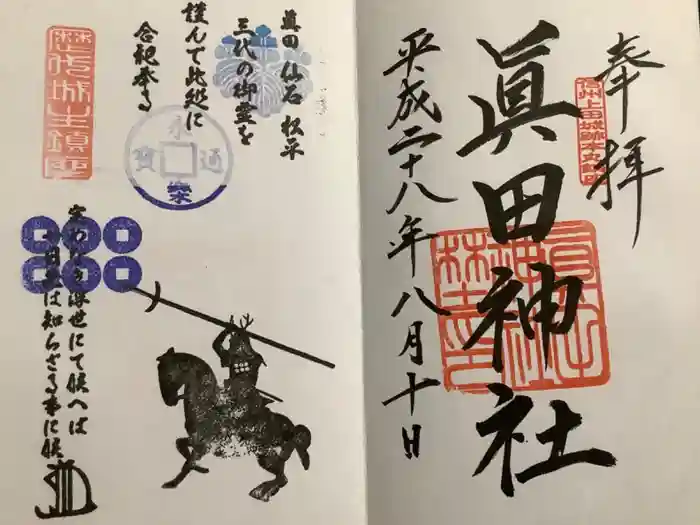 奉拝
信州上田城跡本丸
眞田神社
眞田神社印
平成二十八年八月十日
眞田 仙石 松平
三代の御霊を
謹んで此処に
合祀奉る
歴代城主鎮座
永楽通寳
定めなき浮世にて候へば
一日先は知らざる事に候